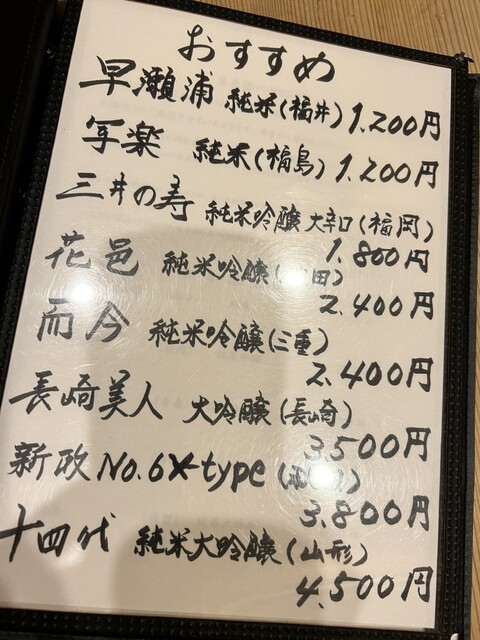 おすすめ
早瀬浦 純米(福井) 1.200円
写楽 純米(福島) 1.200円
三井の寿 純米吟醸 大辛口(福岡)
1.800円
花邑 純米吟醸( 田)
2.400円
而今 純米吟醸(三重)
2.400円
長崎美人 大吟醸(長崎)
3.500円
新政No.6X-type
3.800円
十四代 純米大吟醸(山形)
4.500円